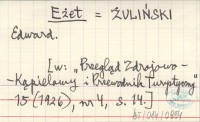 Eżet = ŻULIŃSKI
Edward.
[w: „Przegląd Zdrojowo-
-Kąpielowy i Przewodnik Turystyczny"
15 (1926), nr 4, s. 14.]